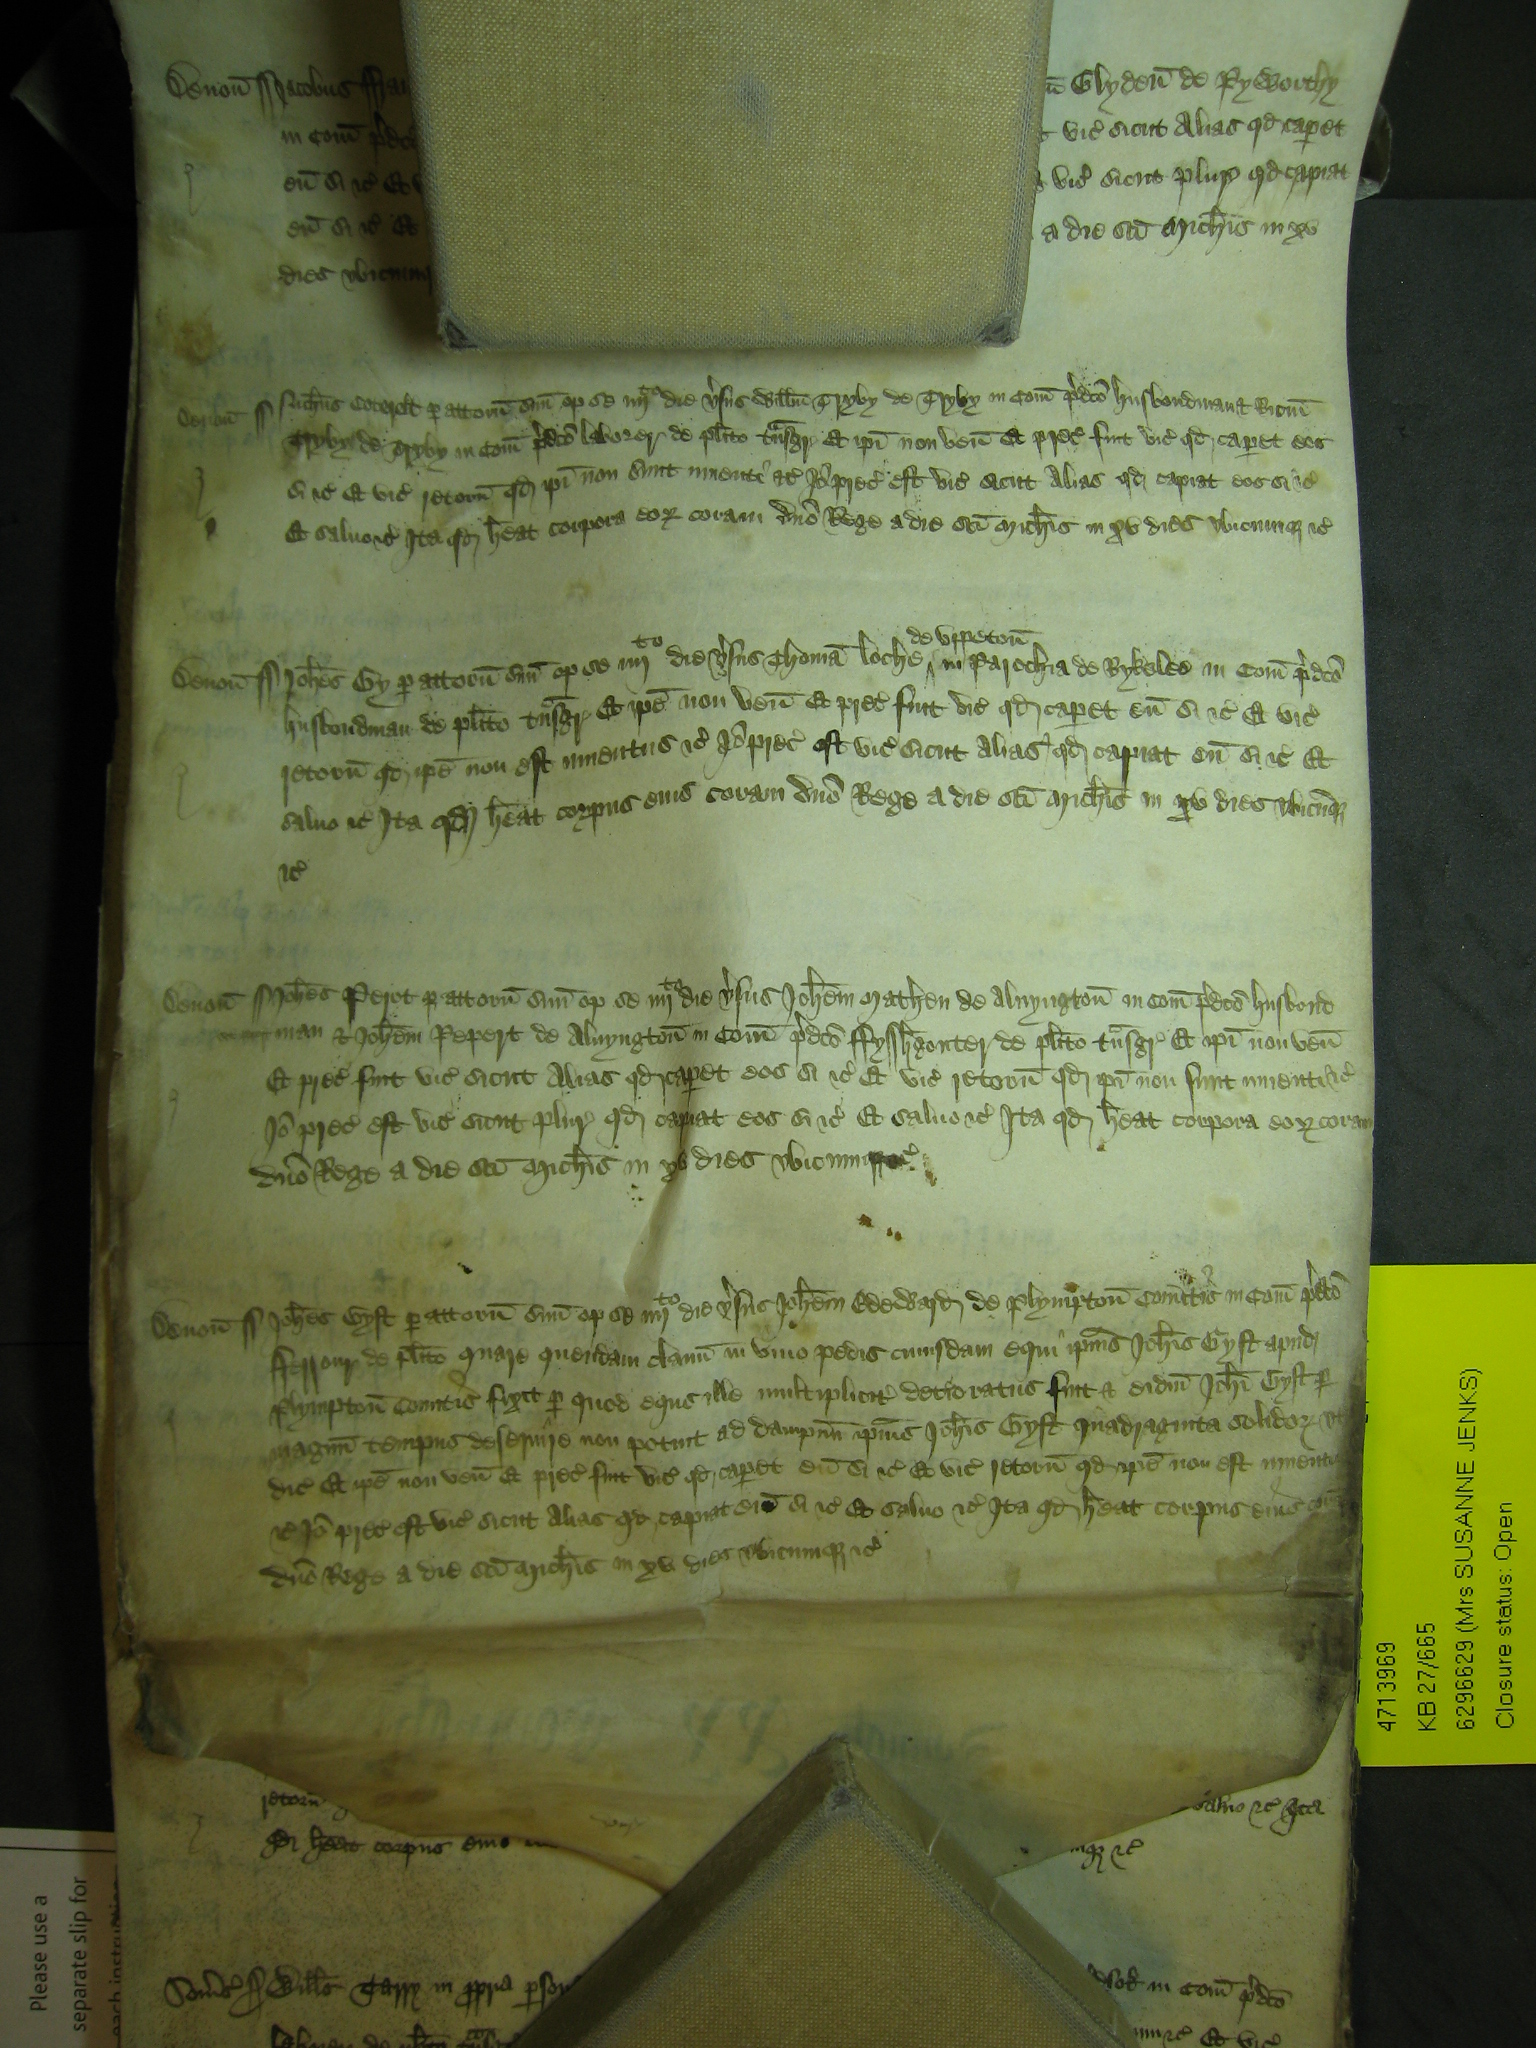 Devon̄ ss Jacobus Glyden̄ de Ryworthy
in Com̄ p̄dc̄o vic̄ sicut Alias qd caperet
eū si ⁊c̄ Et vic̄ sicut plur̄ qd capiat
eū si ⁊c̄ Et a die sc̄i Mich̄is in xv
dies vbicumq
Devon̄ ss Nich̄us Coterell p attorn̄ suū op se iiijto die v̄sus Will̄m Tryby de Tryby in Com̄ p̄dc̄o husbondman & Ric̄m
Tryby de Tryby in Com̄ p̄dc̄o laborer de pl̄ito tn̄sgr̄ Et ip̄i non ven̄ Et prec̄ fuit vic̄ qd caperet eos
si ⁊c̄ Et vic̄ retorn̄ qd ip̄i non sunt inuenti ⁊c̄ Iō prec̄ est vic̄ sicut Alias qd capiat eos si ⁊c̄
Et saluo ⁊c̄ Ita qd h̄eat corpora eoꝝ coram dn̄o Rege a die sc̄i Mich̄is in xv dies vbicumq ⁊c̄
de vppeton̄
Devon̄ ss Joh̄es Gy p attorn̄ suū op se iiijto die v̄sus Thomā loche in Parochia de Bykelee in Com̄ p̄dc̄o
husbondman de pl̄ito tn̄sgr̄ Et ip̄e non ven̄ Et prec̄ fuit vic̄ qd caperet eū si ⁊c̄ Et vic̄
retorn̄ qd ip̄e non est inuentus ⁊c̄ Iō prec̄ est vic̄ sicut Alias qd capiat eū si ⁊c̄ Et
saluo ⁊c̄ Ita qd h̄eat corpus eius coram dn̄o Rege a die sc̄i Mich̄is in xv dies vbicūq
⁊c̄
Devon̄ ss Joh̄es Perot p attorn̄ suū op se iiijto die v̄sus Joh̄em Mathen de Aluyngton̄ in Com̄ p̄dc̄o husbond
man & Joh̄em Pepert de Aluyngton̄ in Com̄ p̄dc̄o ffysshonter de pl̄ito tn̄sgr̄ Et ip̄i non ven̄
Et prec̄ fuit vic̄ sicut Alias qd caperet eos si ⁊c̄ Et vic̄ retorn̄ qd ip̄i non sunt inuenti ⁊c̄
Iō prec̄ est vic̄ sicut plur̄ qd capiat eos si ⁊c̄ Et saluo ⁊c̄ Ita qd h̄eat corpora eoꝝ coram
dn̄o Rege a die sc̄i Mich̄is in xv dies vbicumq ⁊c̄
Devon̄ ss Joh̄es Gyst p attorn̄ suū op se iiijto die v̄sus Joh̄em Edeward de Plympton̄ Comitis in Com̄ p̄dc̄o
fferrour de pl̄ito quare quendam clauū in viuo pedis cuiusdam equi ip̄ius Joh̄is Gyst apud
Plympton̄ Comitis fixit p quod equs ille multiplicit̄ deterioratus fuit & eidm̄ Joh̄i Gyst p
magnū tempus deseruire non potuit ad dampnū ip̄ius Joh̄is Gyst Quadraginta solidoꝝ vt
dic̄ Et ip̄e non ven̄ Et prec̄ fuit vic̄ qd caperet eū si ⁊c̄ Et vic̄ retorn̄ qd ip̄e non est inuentus
⁊c̄ Iō prec̄ est vic̄ sicut Alias qd capiat eū si ⁊c̄ Et saluo ⁊c̄ Ita qd h̄eat corpus eius
dn̄o Rege a die sc̄i Mich̄is in xv dies vbicumq ⁊c̄
retorn̄ saluo ⁊c̄ Ita
qd h̄eat corpus eius ⁊c̄
Som̄s ss Will̄s Tarry in ppria in Com̄ p̄dc̄o
4713969
KB 27/665
6296629 (Mrs SUSANNE JENKS)
Closure status: Open
Please use a
separate slip for
each instruction